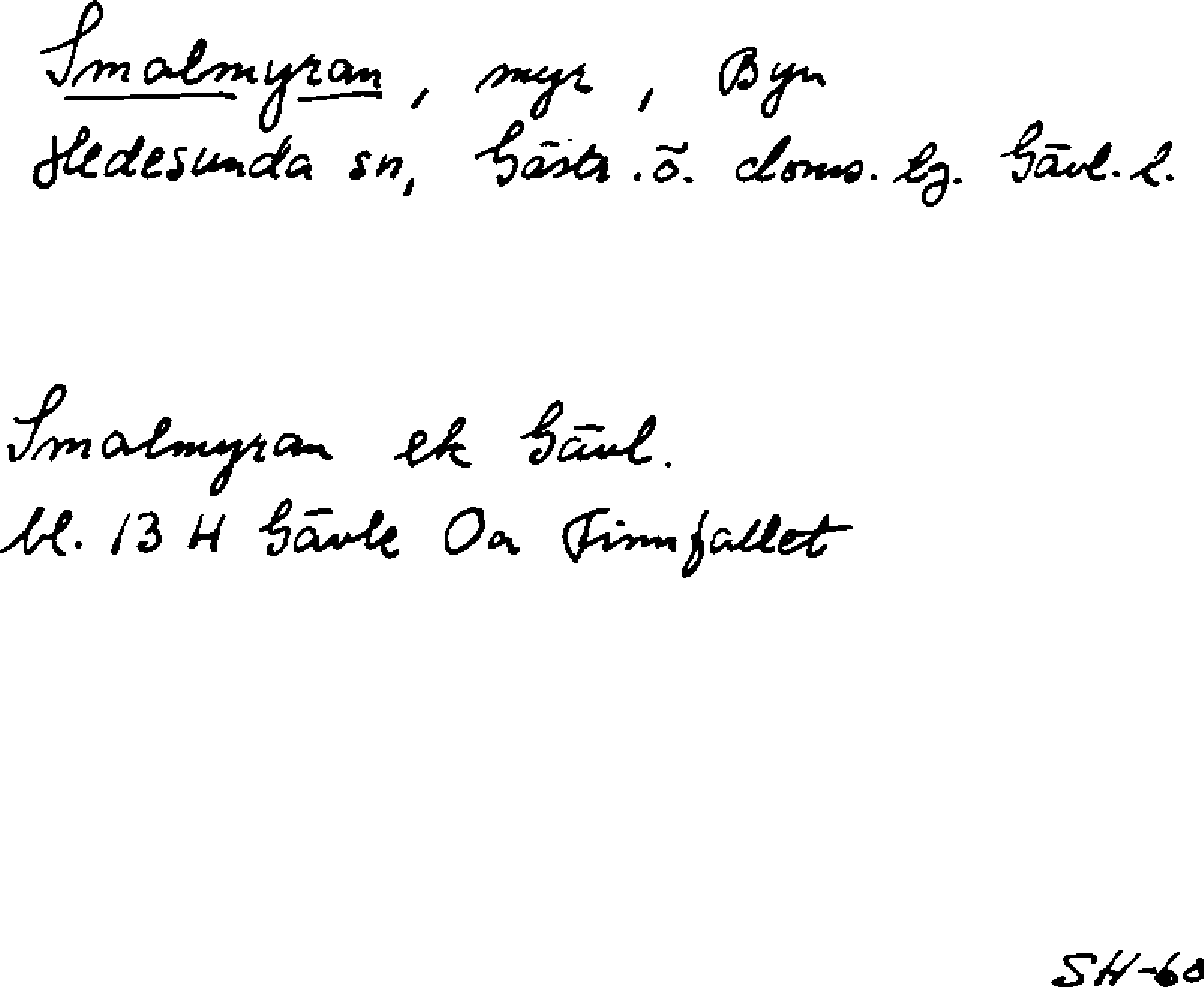 Smalmyran, myr, Byn
Hedesunda sn, Gästr.ö. doms. lg. Gävl.l.
Smalmyran ek Gävl.
bl. 13 H Gävle Oa Finnfallet
SH-60